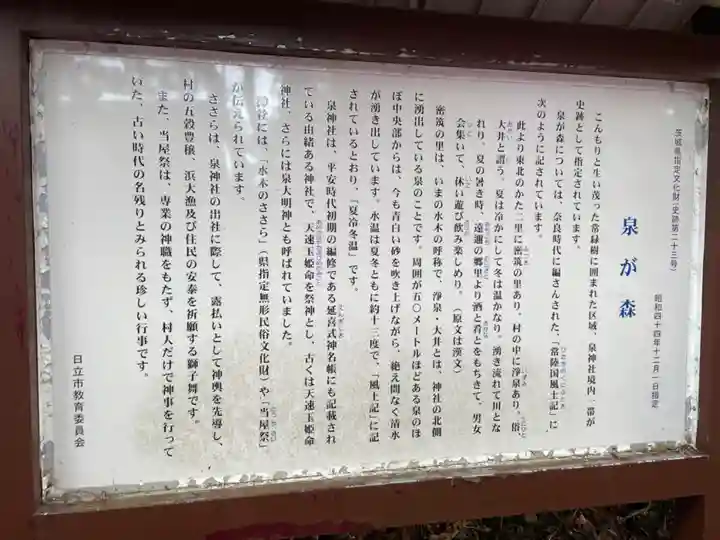 茨城県指定文化財(史跡第二十三号)
昭和四十四年十二月一日指定
泉が森
こんもりと生い茂った常緑樹に囲まれた区域、泉神社境内一帯が
史跡として指定されています。
泉が森については、奈良時代に編さんされた、「常陸国風土記」に
次のように記されています。
此より東北のかた二里に密筑の里あり。村の中に淨泉あり。俗、
大井と謂う。夏は冷かにして冬は温かなり。湧き流れて川とな
れり。夏の暑き時、遠邇の郷里より酒と肴とをもちきて、男女
会集いて、休い遊び飲み楽しめり。(原文は漢文)
密筑の里は、いまの水木の呼称で、淨泉・大井とは、神社の北側
に湧出している泉のことです。周囲が五〇メートルほどある泉のほ
ぼ中央部からは、今も青白い砂を吹き上げながら、絶え間なく清水
が湧き出しています。水温は夏冬ともに約十三度で、「風土記」に記
されているとおり、「夏冷冬温」です。
泉神社は、平安時代初期の編修である延喜式神名帳にも記載され
ている由緒ある神社で、天速玉姫命を祭神とし、古くは天速玉姫命
神社、さらには泉大明神とも呼ばれていました。
神社には、「水木のささら」(県指定無形民俗文化財)や「当屋祭」
が伝えられています。
ささらは、泉神社の出社に際して、露払いとして神輿を先導し、
村の五穀豊穣、浜大漁及び住民の安泰を祈願する獅子舞です。
また、当屋祭は、専業の神職をもたず、村人だけで神事を行って
いた、古い時代の名残りとみられる珍しい行事です。
日立市教育委員会